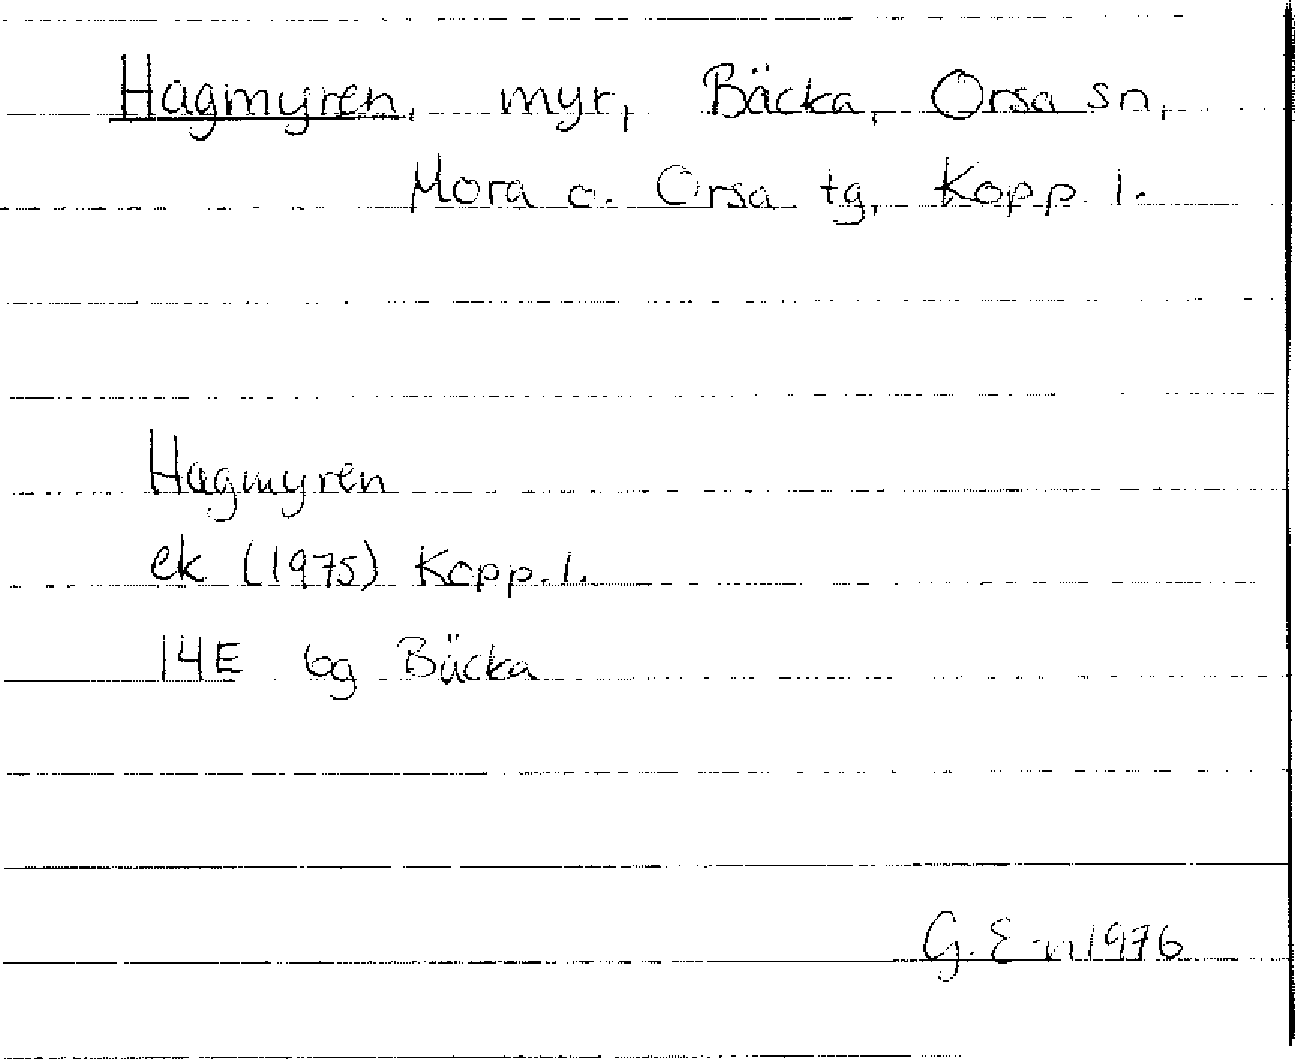 Hagmyren, myr, Bäcka, Orsa sn,
Mora o. Orsa tg, Kopp. l.
Hagmyren
ek (1975) Kopp. l.
14E 6g Bäcka
G. E-n 1976